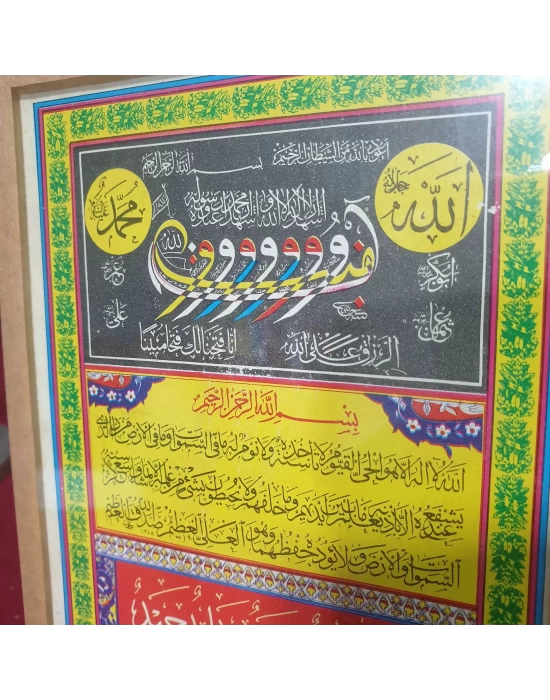 اعوذ بالله من الشيطان الرجيم
بسم الله الرحمن الرحيم
الله جل جلاله
محمد
اشهد ان لا اله الا الله و اشهد ان محمدا عبده و رسوله
الله
ابوبكر
عمر
عثمان
علي
الرزق على الله
انا فتحنا لك فتحا مبينا
بسم الله الرحمن الرحيم
الله لا اله الا هو الحي القيوم لا تاخذه سنة ولا نوم له ما في السموات وما في الارض من ذا الذي
يشفع عنده الا باذنه يعلم ما بين ايديهم وما خلفهم ولا يحيطون بشيء من علمه الا بما شاء وسع كرسيه
السموات والارض ولا يوده حفظهما وهو العلي العظيم صدق الله العظيم